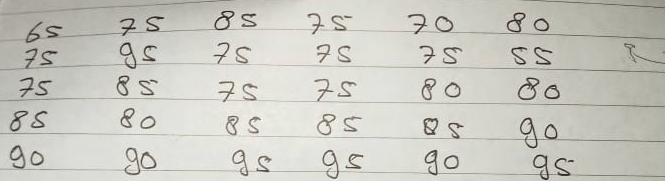 65 75 85 75 70 80
75 95 75 75 75 55
75 85 75 75 80 80
85 80 85 85 85 90
90 90 95 95 90 95